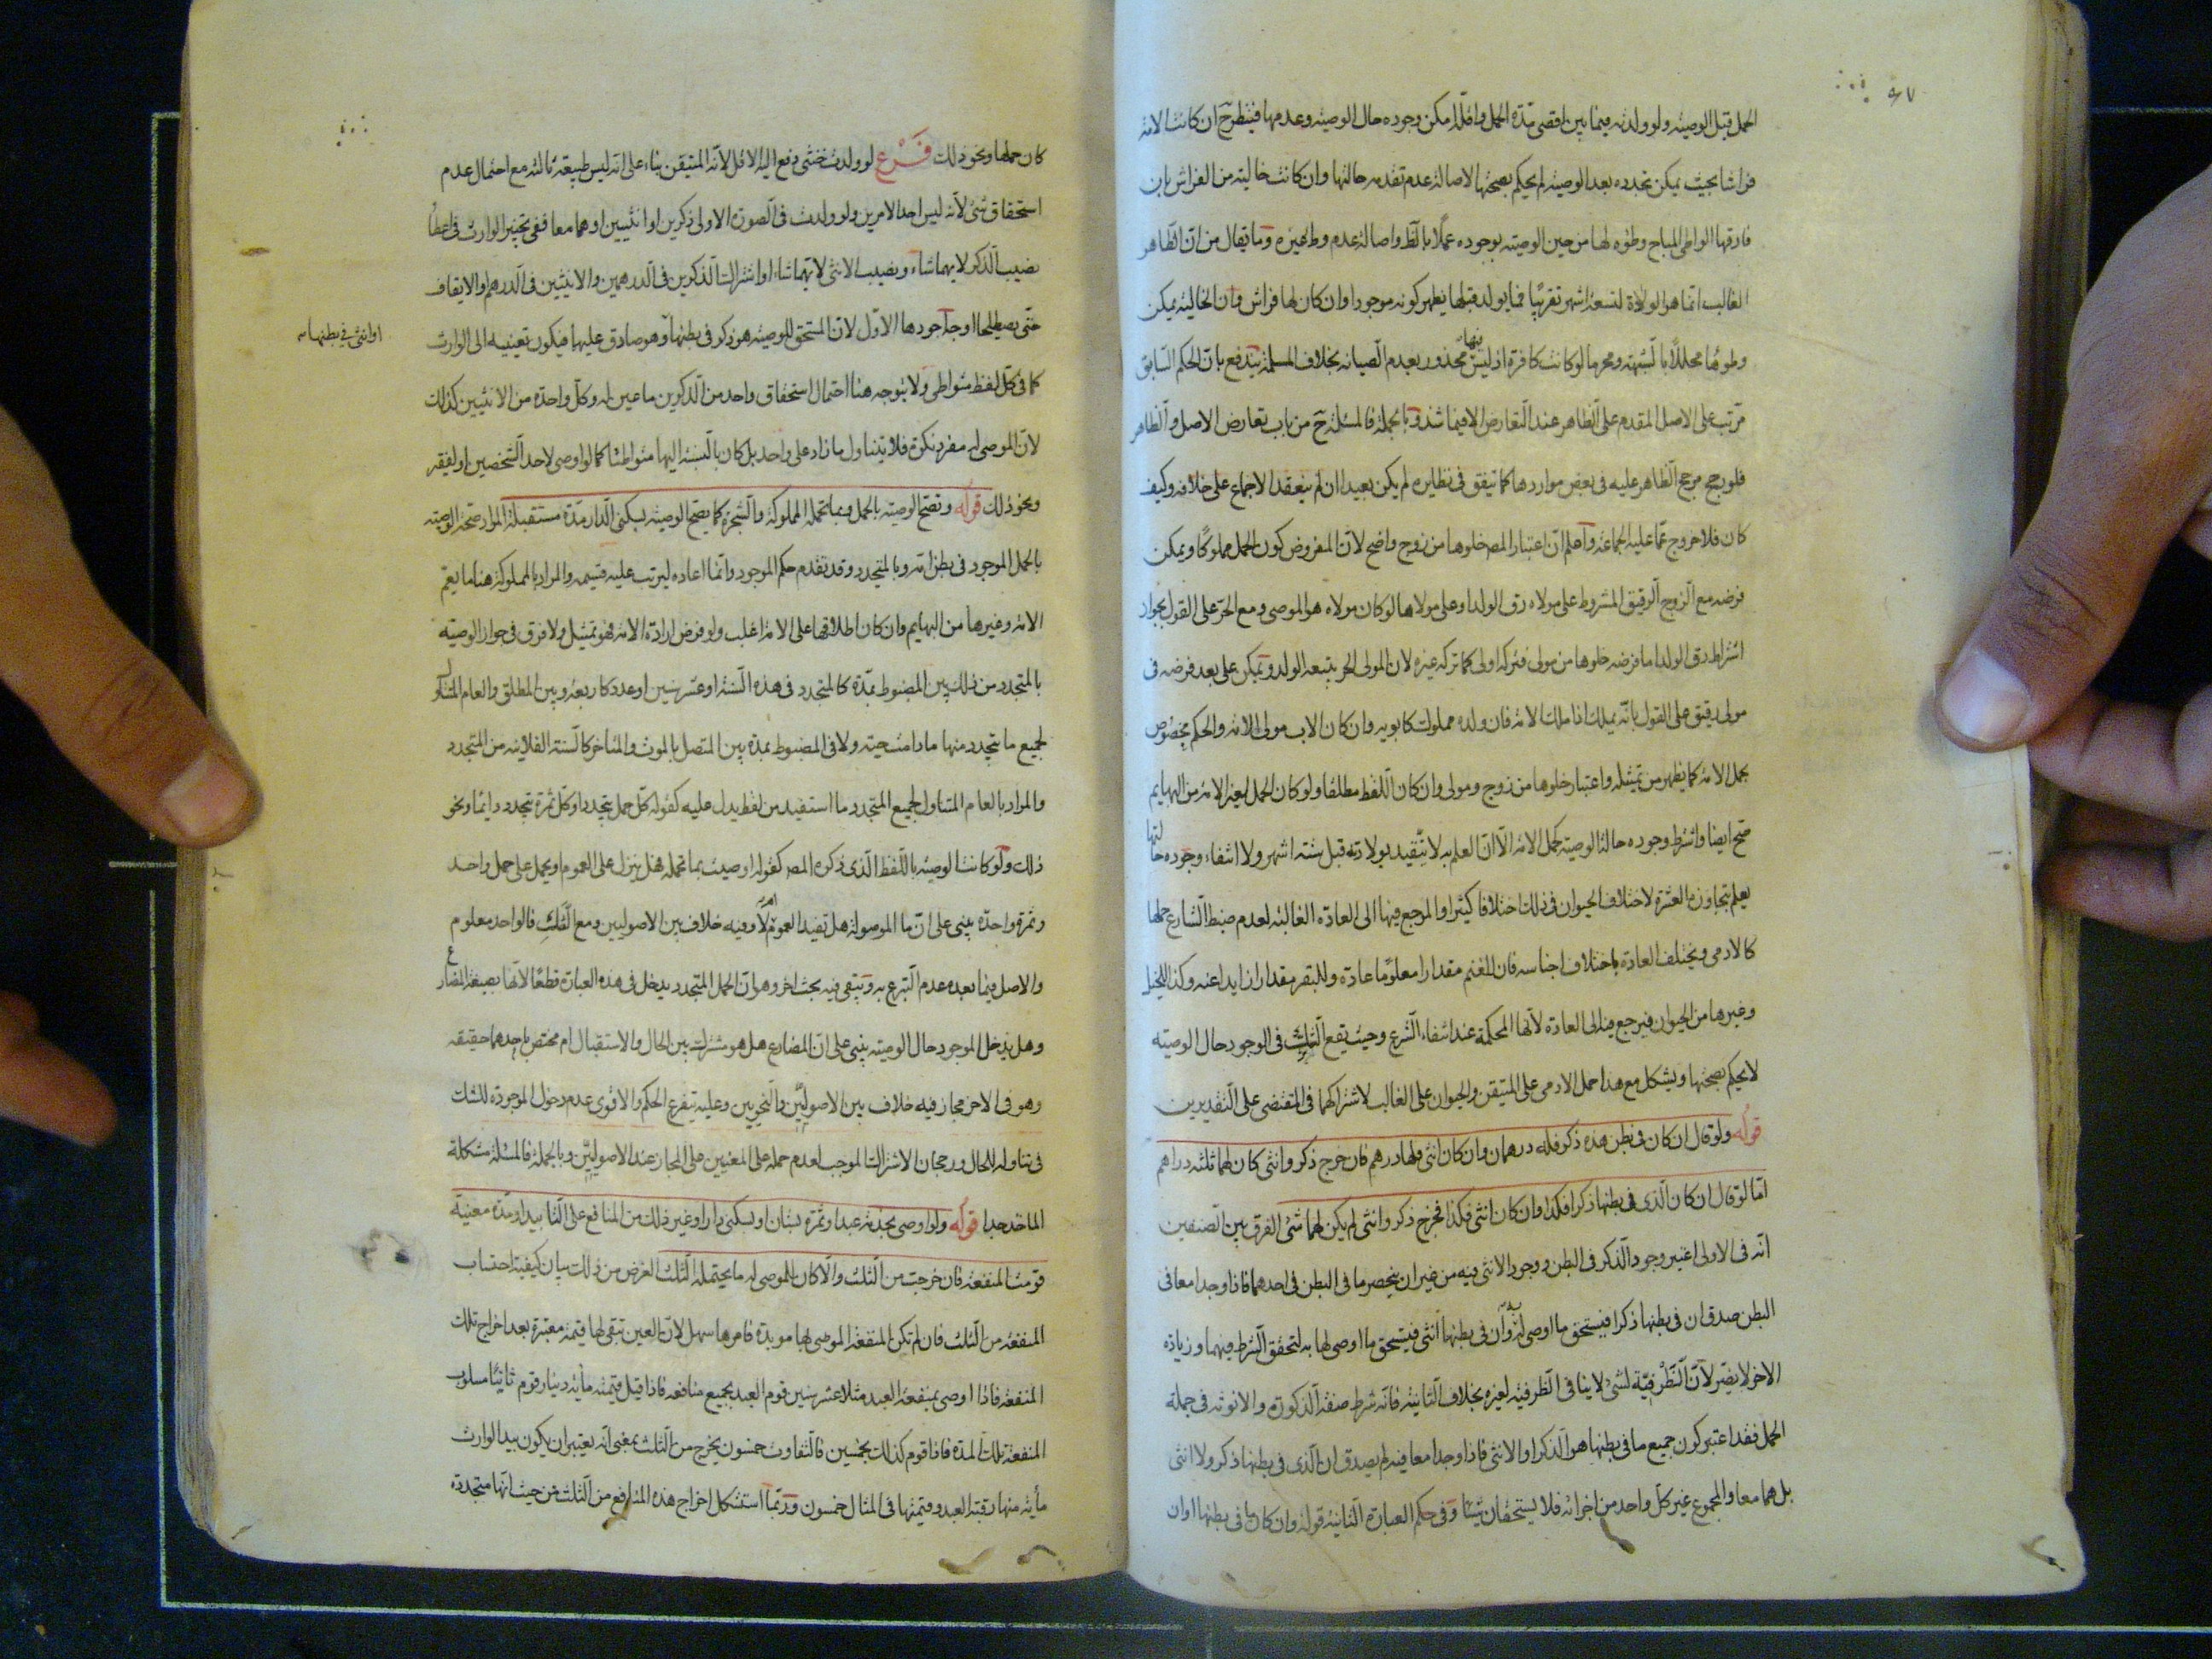 الحمل قبل الوصيه ولو ولدته فيما بين اقصى مدّة الحمل واقلّه امكن وجوده حال الوصيه وعدمها فينظر ح ان كانت الامة
فراشا بحيث يمكن تجدده بعد الوصيه لم يحكم بصحتها لاصالة عدم تقدمه حالتها وان كانت خالية من الفراش بان
فارقها الواطى المباح وطؤه لها من حين الوصيه بوجوده عملًا بالظ واصالة عدم وطى غيره وما يقال من ان الظاهر
الغالب انما هو الولادة لتسعة اشهر تقريبًا فما يولد قبلها يظهر كونه موجودا وان كان لها فراش وان الخالية يمكن
وطوها محللًا بالشبهة ومحرما لو كانت كافرة اذ ليس فيها محذور بعدم الصيانة بخلاف المسلمة يندفع بان الحكم السّابق
مرتب على الاصل المقدم على الظاهر عند التعارض الا فيما شذ وبالجملة فالمسئلة ح من باب تعارض الاصل والظاهر
فلو رجح مرجح الظاهر عليه في بعض مواردها كما تيفق في نظايره لم يكن بعيدا ان لم ينعقد الاجماع على خلافه وكيف
كان فلا خروج عمّا عليه الجماعة واعلم ان اعتبار المصـ خلوها من زوج واضح لان المفروض كون الحمل مملوكًا ويمكن
فرضه مع الزوج الرقيق المشروط على مولاه رق الولد او على مولاها لو كان مولاه هو الموصى ومع الحرّ على القول بجواز
اشتراط رق الولد اما فرضه خلوها من مولى فتركه اولى كما تركه غيره لان المولى الحر يتبعه الولد ويمكن على بعد فرضه في
مولى رقيق على القول بانّه يملك اذا ملك الامة فان ولده مملوك كابويه وان كان الاب مولى الامة والحكم مخصوص
بحمل الامة كما يظهر من تمثيله واعتبار خلوها من زوج ومولى وان كان اللفظ مطلقا ولو كان الحمل لغير الامة من البهايم
صح ايضا واشترط وجوده حالة الوصيه كحمل الامة الّا ان العلم به لا يتقيد بولادته قبل ستة اشهر ولا انتفاء وجوده حالتها
يعلم بتجاوز العشرة لاختلاف الحيوان في ذلك اختلافا كثيرا والمرجع فيها الى العادة الغالبة لعدم ضبط الشارع حملها
كالادمى ويختلف العادة باختلاف اجناسه فان للغنم مقدارا معلومًا عادة وللبقر مقدارا زايدا عنه وكذا للخيل
وغيرها من الحيوان فيرجع فيه الى العادة لانها المحكمة عند انتفاء الشرع وحيث يقع الشك في الوجود حال الوصيه
لا يحكم بصحتها ويشكل مع هذا حمل الادمى على المتيقن والحيوان على الغالب لاشتراكهما في المقتضى على التقديرين
قوله ولو قال ان كان في بطن هذه ذكر فله درهمان وان كان انثى فلها درهم فان خرج ذكر وانثى كان لهما ثلثه دراهم
امّا لو قال ان كان الذى في بطنها ذكرا فكذا وان كان انثى فكذا فخرج ذكر وانثى لم يكن لهما شئ الفرق بين الصنفين
انّه في الاولى اعتبر وجود الذكر في البطن ووجود الانثى فيه من غير ان ينحصر ما في البطن في احدهما فاذا وجدا معا في
البطن صدق ان في بطنها ذكرا فيستحق ما اوصى له به وان في بطنها انثى فيستحق ما اوصى لها به لتحقق الشرط فيهما وزيادة
الاخر لا يضر لان الظرفيّة لشئ لا ينافى الظرفيه لغيره بخلاف الثانيه فانّه شرط صفة الذكورة والانوثه في جملة
الحمل فقد اعتبر كون جميع ما في بطنها هو الذكر او الانثى فاذا وجدا معا فيه لم يصدق ان الذى في بطنها ذكر ولا انثى
بل هما معا والمجموع غير كل واحد من اجزائه فلا يستحقان شيئا وفي حكم العبارة الثانيه قوله وان كان ما في بطنها او ان
كان حملها ونحو ذلك فرع لو ولدت خنثى دفع اليه الاقل لانّه المتيقن بناء على انّه ليس طبيعة ثالثة مع احتمال عدم
استحقاق شئ لانّه ليس احد الامرين ولو ولدت في الصورة الاولى ذكرين او انثيين او هما معا ففى تخيير الوارث في اعطاء
نصيب الذكر لايهما شاء ونصيب الانثى لايتهما شاء او اشتراك الذكرين في الدرهمين والانثيين في الدرهم والايقاف
حتّى يصطلحا اوجه اجودها الاوّل لان المستحق للوصيه هو ذكر في بطنها وهو صادق عليهما فيكون تعيينه الى الوارث
او انثى في بطنها
كما في كلّ لفظ متواطى ولا يتوجه هنا احتمال استحقاق واحد من الذكرين ما عين له وكل واحدة من الانثيين كذلك
لان الموصى له مفرد نكرة فلا يتناول ما زاد على واحد بل كان بالنسبة اليها متواطئا كما لو اوصى لاحد الشخصين او لفقير
ونحو ذلك قوله وتصحّ الوصيه بالحمل وبما تحمله المملوكة والشجرة كما يصح الوصيه بسكنى الدار مدّة مستقبلة المراد صحة الوصيه
بالحمل الموجود في بطن امّه وبالمتجدد وقد تقدم حكم الموجود وانّما اعاده ليرتب عليه قسيمه والمراد بالمملوكة هنا ما يعمّ
الامة وغيرها من البهايم وان كان اطلاقها على الامة اغلب ولو فرض ارادة الامة فهو تمثيل ولا فرق في جواز الوصيه
بالمتجدد من ذلك بين المضبوط بمدّة كالمتجدد في هذه السّنة او عشر سنين او عدد كاربعة وبين المطلق والعام المتناول
لجميع ما يتجدد منها ما دامت حيّة ولا في المضبوط بمدّة بين المتصل بالموت والمتاخر كالسنة الفلانيه من المتجدد
والمراد بالعام المتناول لجميع المتجدد ما استفيد من لفظ يدل عليه كقوله كلّ حمل يتجدد او كل ثمرة يتجدد دايمًا ونحو
ذلك ولو كانت الوصيه باللفظ الذى ذكره المصـ كقوله اوصيت بما تحمله هل ينزل على العموم او يحمل على حمل واحد
وثمرة واحدة يبنى على ان ما الموصولة هل تفيد العموم ام لا وفيه خلاف بين الاصوليين ومع الشك فالواحد معلوم
والاصل فيما بعده عدم التبرع به ويبقى فيه بحث اخر وهو ان الحمل المتجدد يدخل في هذه العبارة قطعًا لانّها بصيغة المضارع
وهل يدخل الموجود حال الوصيه يبنى على ان المضارع هل هو مشترك بين الحال والاستقبال ام مختص باحدهما حقيقة
وهو في الاخر مجاز فيه خلاف بين الاصوليّين والنحويين وعليه يتفرع الحكم والاقوى عدم دخول الموجودة للشك
في تناوله للحال ورجحان الاشتراك الموجب لعدم حمله على المعنيين على المجاز عند الاصوليّين وبالجملة فالمسئلة مشكلة
الماخذ جدا قوله ولو اوصى بخدمة عبد او ثمرة بستان او سكنى دار او غير ذلك من المنافع على التابيد او مدّة معينة
قومت المنفعة فان خرجت من الثلث والّا كان للموصى له ما يحتمله الثلث الغرض من ذلك بيان كيفية احتساب
المنفعة من الثلث فان لم تكن المنفعة الموصى بها موبدة فامرها سهل لان العين تبقى لها قيمة معتبرة بعد اخراج تلك
المنفعة فاذا اوصى بمنفعة العبد مثلا عشر سنين قوم العبد بجميع منافعه فاذا قيل قيمته مائه دينار قوم ثانيًا مسلوب
المنفعة تلك المدّة فاذا قوم كذلك بخمسين فالتفاوت خمسون يخرج من الثلث بمعنى انّه يعتبر ان يكون بيد الوارث
مأيه منها رقبة العبد وقيمتها في المثال خمسون وربّما استشكل اخراج هذه المنافع من الثلث من حيث انها متجددة